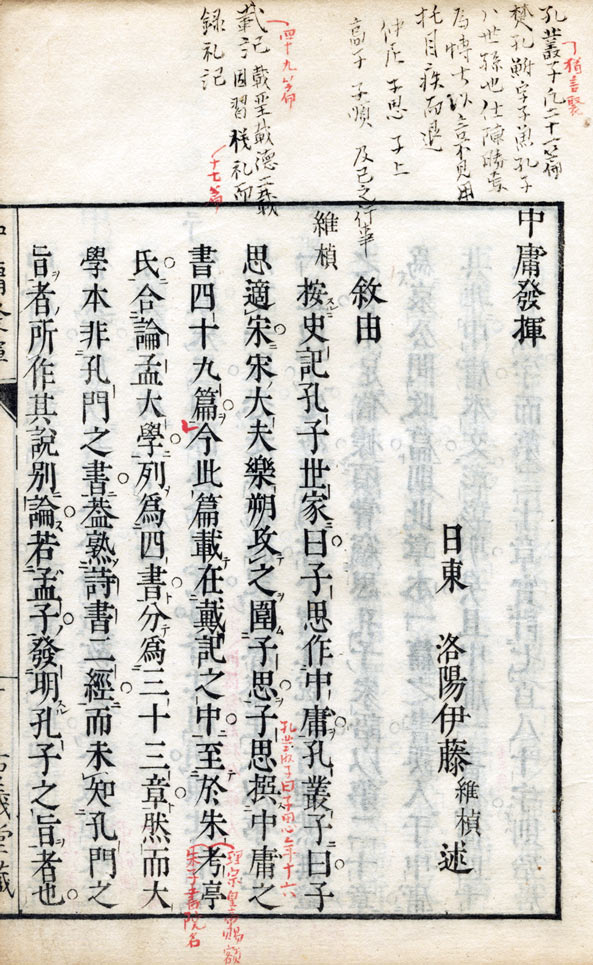 孔叢子凡二十一篇
楚孔鮒字子魚孔子
八世孫也仕陳勝
爲博士以言不見用
托目疾而退
仲尼 子思 子上
高子 子順 及己之行事
戴記 戴聖戴德二戴
錄礼記
四十九篇
十七篇
中庸發揮
日東 洛陽伊藤維楨述
敘由
維楨按史記孔子世家曰子思作中庸孔叢子曰子
思適宋宋大夫樂朔攻之圍子思子思撰中庸之
書四十九篇今此篇載在戴記之中至於朱考亭
氏合論孟大學列爲四書分爲三十三章然而大
學本非孔門之書葢熟詩書二經而未知孔門之
旨者所作其說別論若孟子發明孔子之旨者也
理宗皇帝賜額
朱子書院名